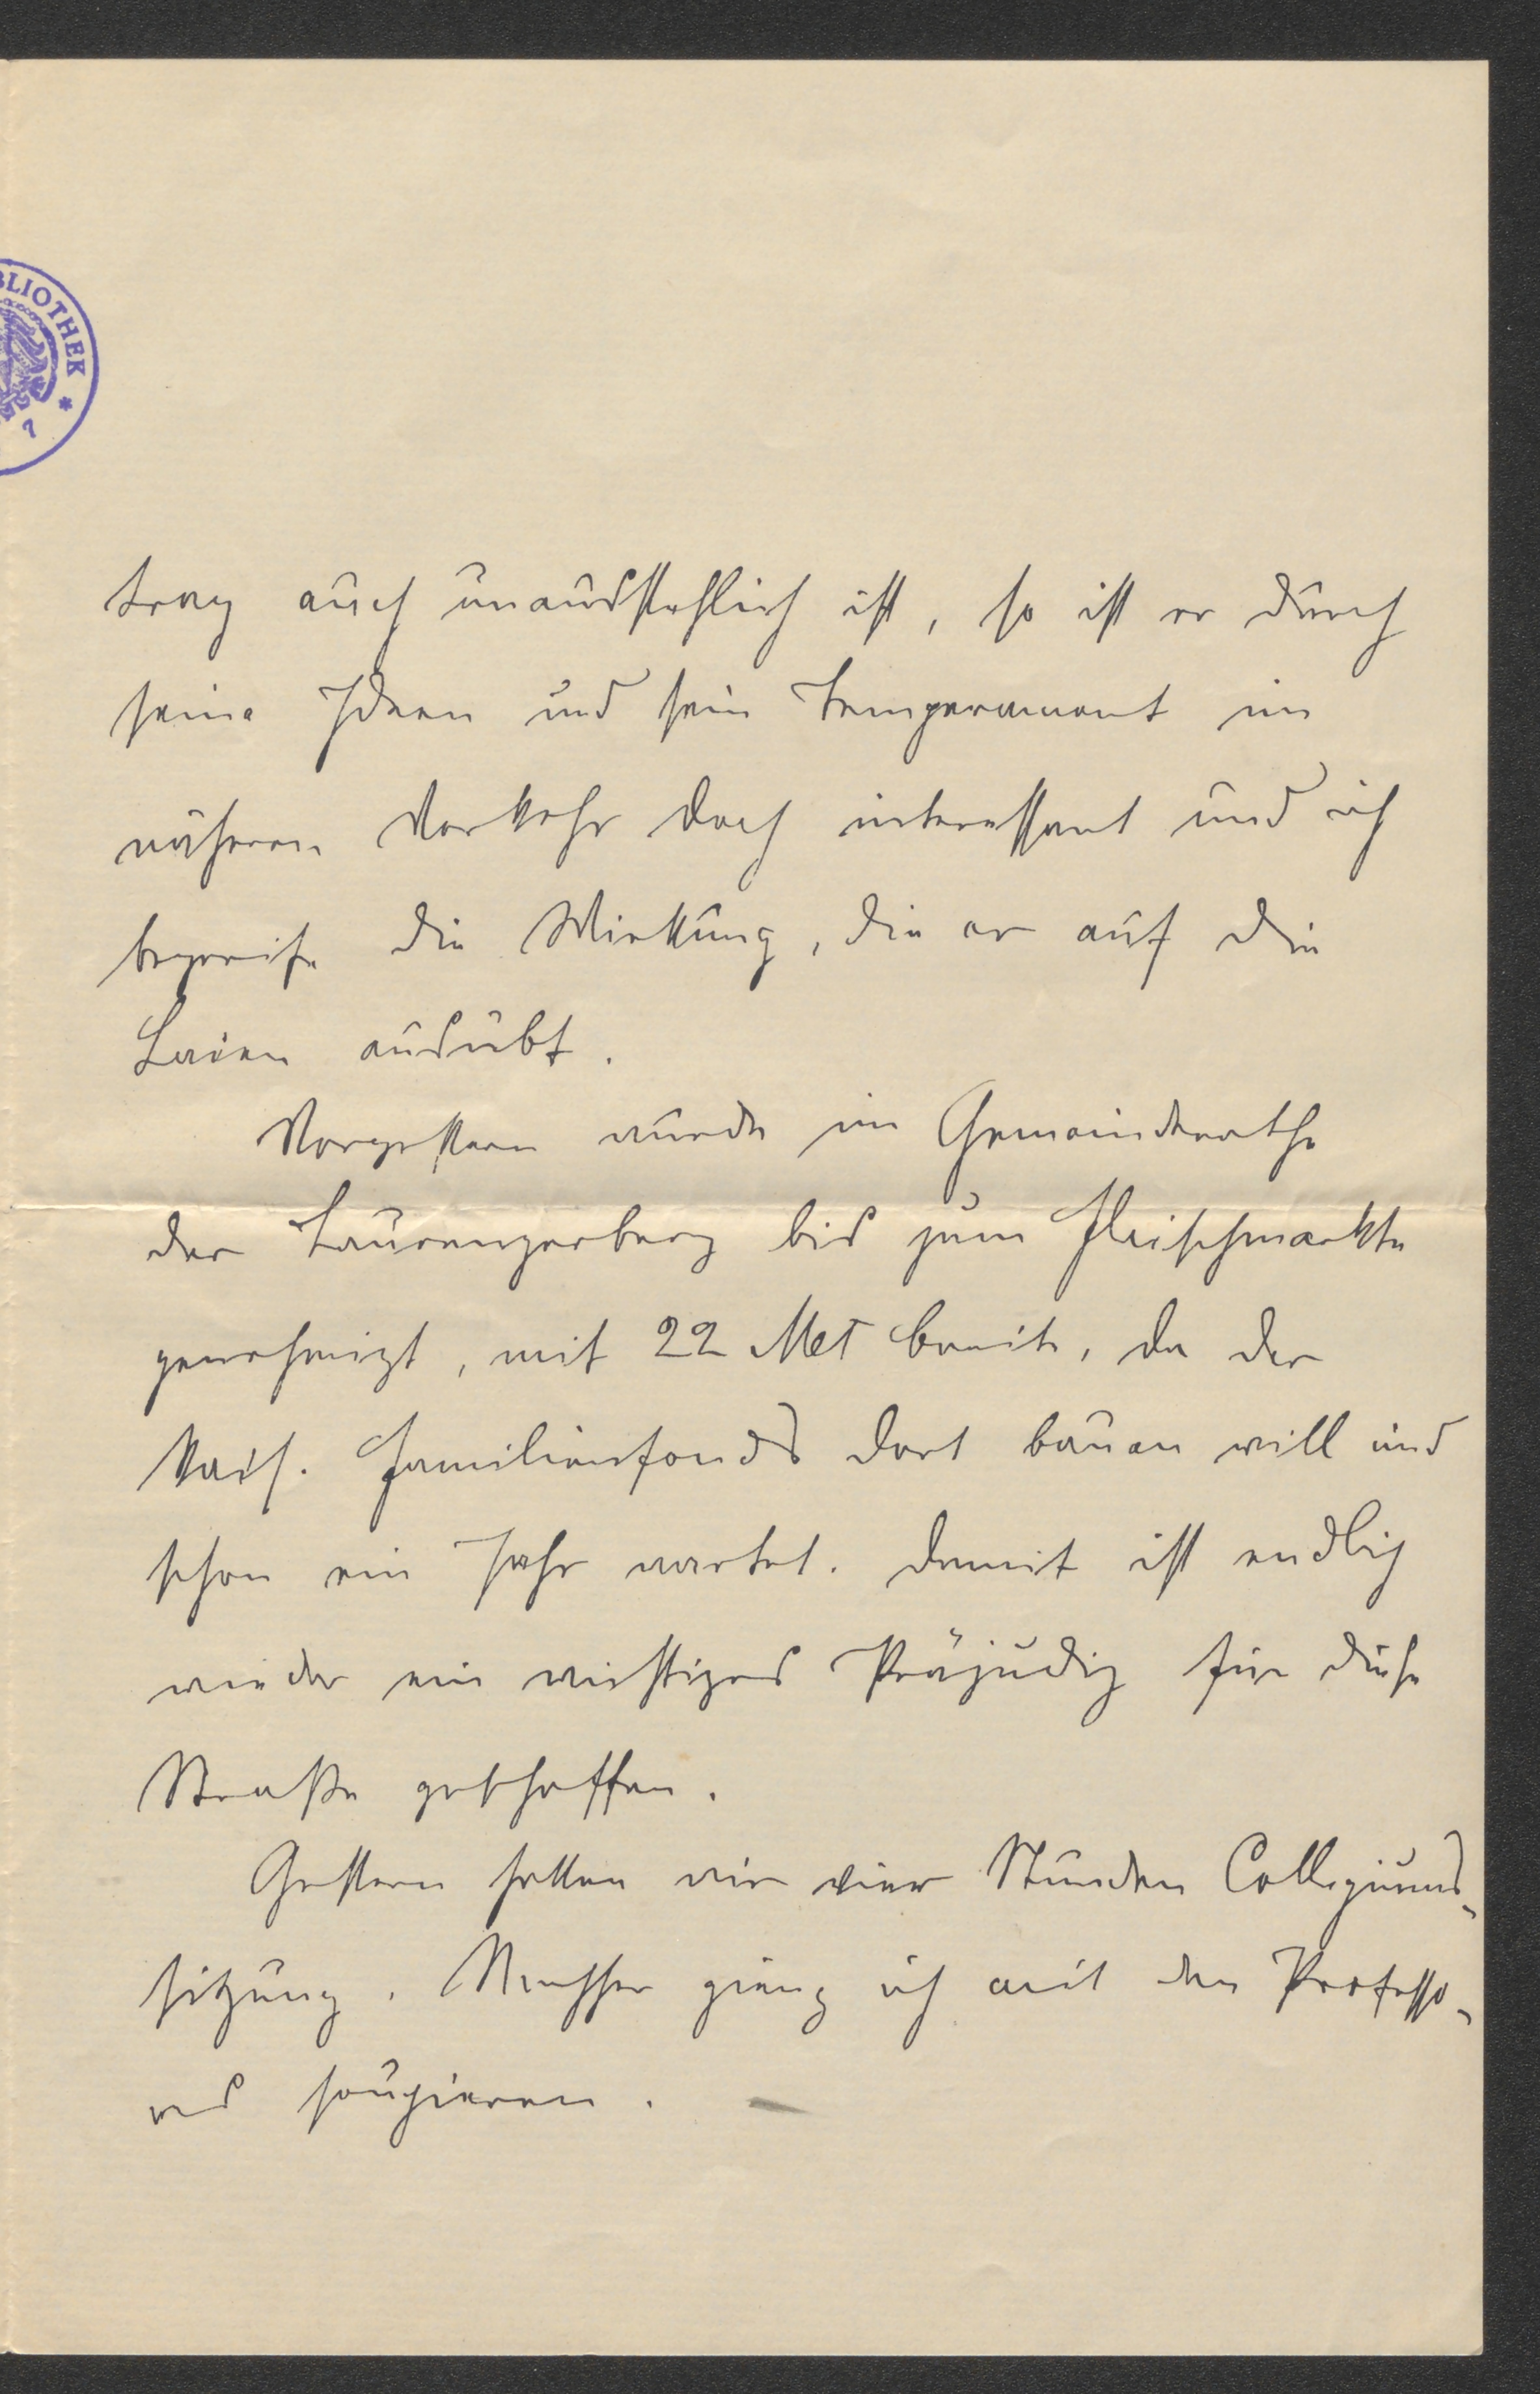 BLIOTHEK *
trag auch unausstehlich ist, so ist er durch
seine Ideen und sein Temperament im
näheren Verkehr doch interessant und ich
begreife die Wirkung, die er auf die
Laien ausübt.
Vorgestern wurde im Gemeinderathe
der Laurenzerberg bis zum Fleischmarkte
genehmigt, mit 22 Met Breite, da der
kais. Familienfonds dort bauen will und
schon ein Jahr wartet. Damit ist endlich
wieder ein wichtiges Präjudiz für diese
Straße geschaffen.
Gestern hatten wir vier Stunden Collegiums-
sitzung. Nachher gieng ich mit den Professo-
res soupieren.